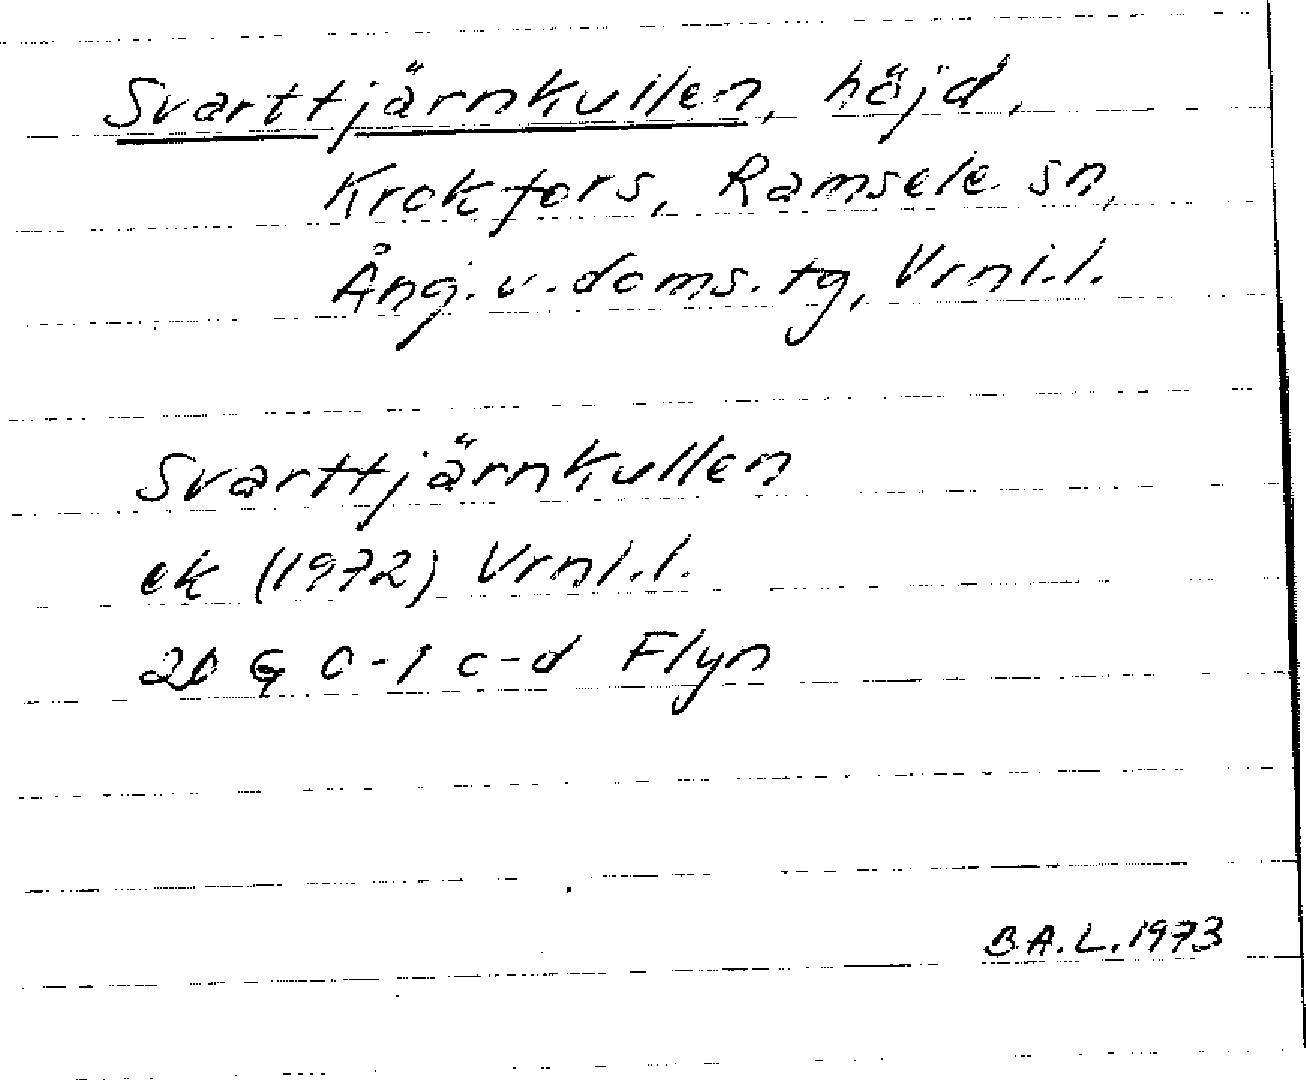 Svarttjärnkullen, höjd,
Krokfors, Ramsele sn,
Ång. v. doms. tg, Vrnl.l.
Svarttjärnkullen
ek (1972) Vrnl.l.
20 G 0-1 c-d Flyn
B.A.L. 1973